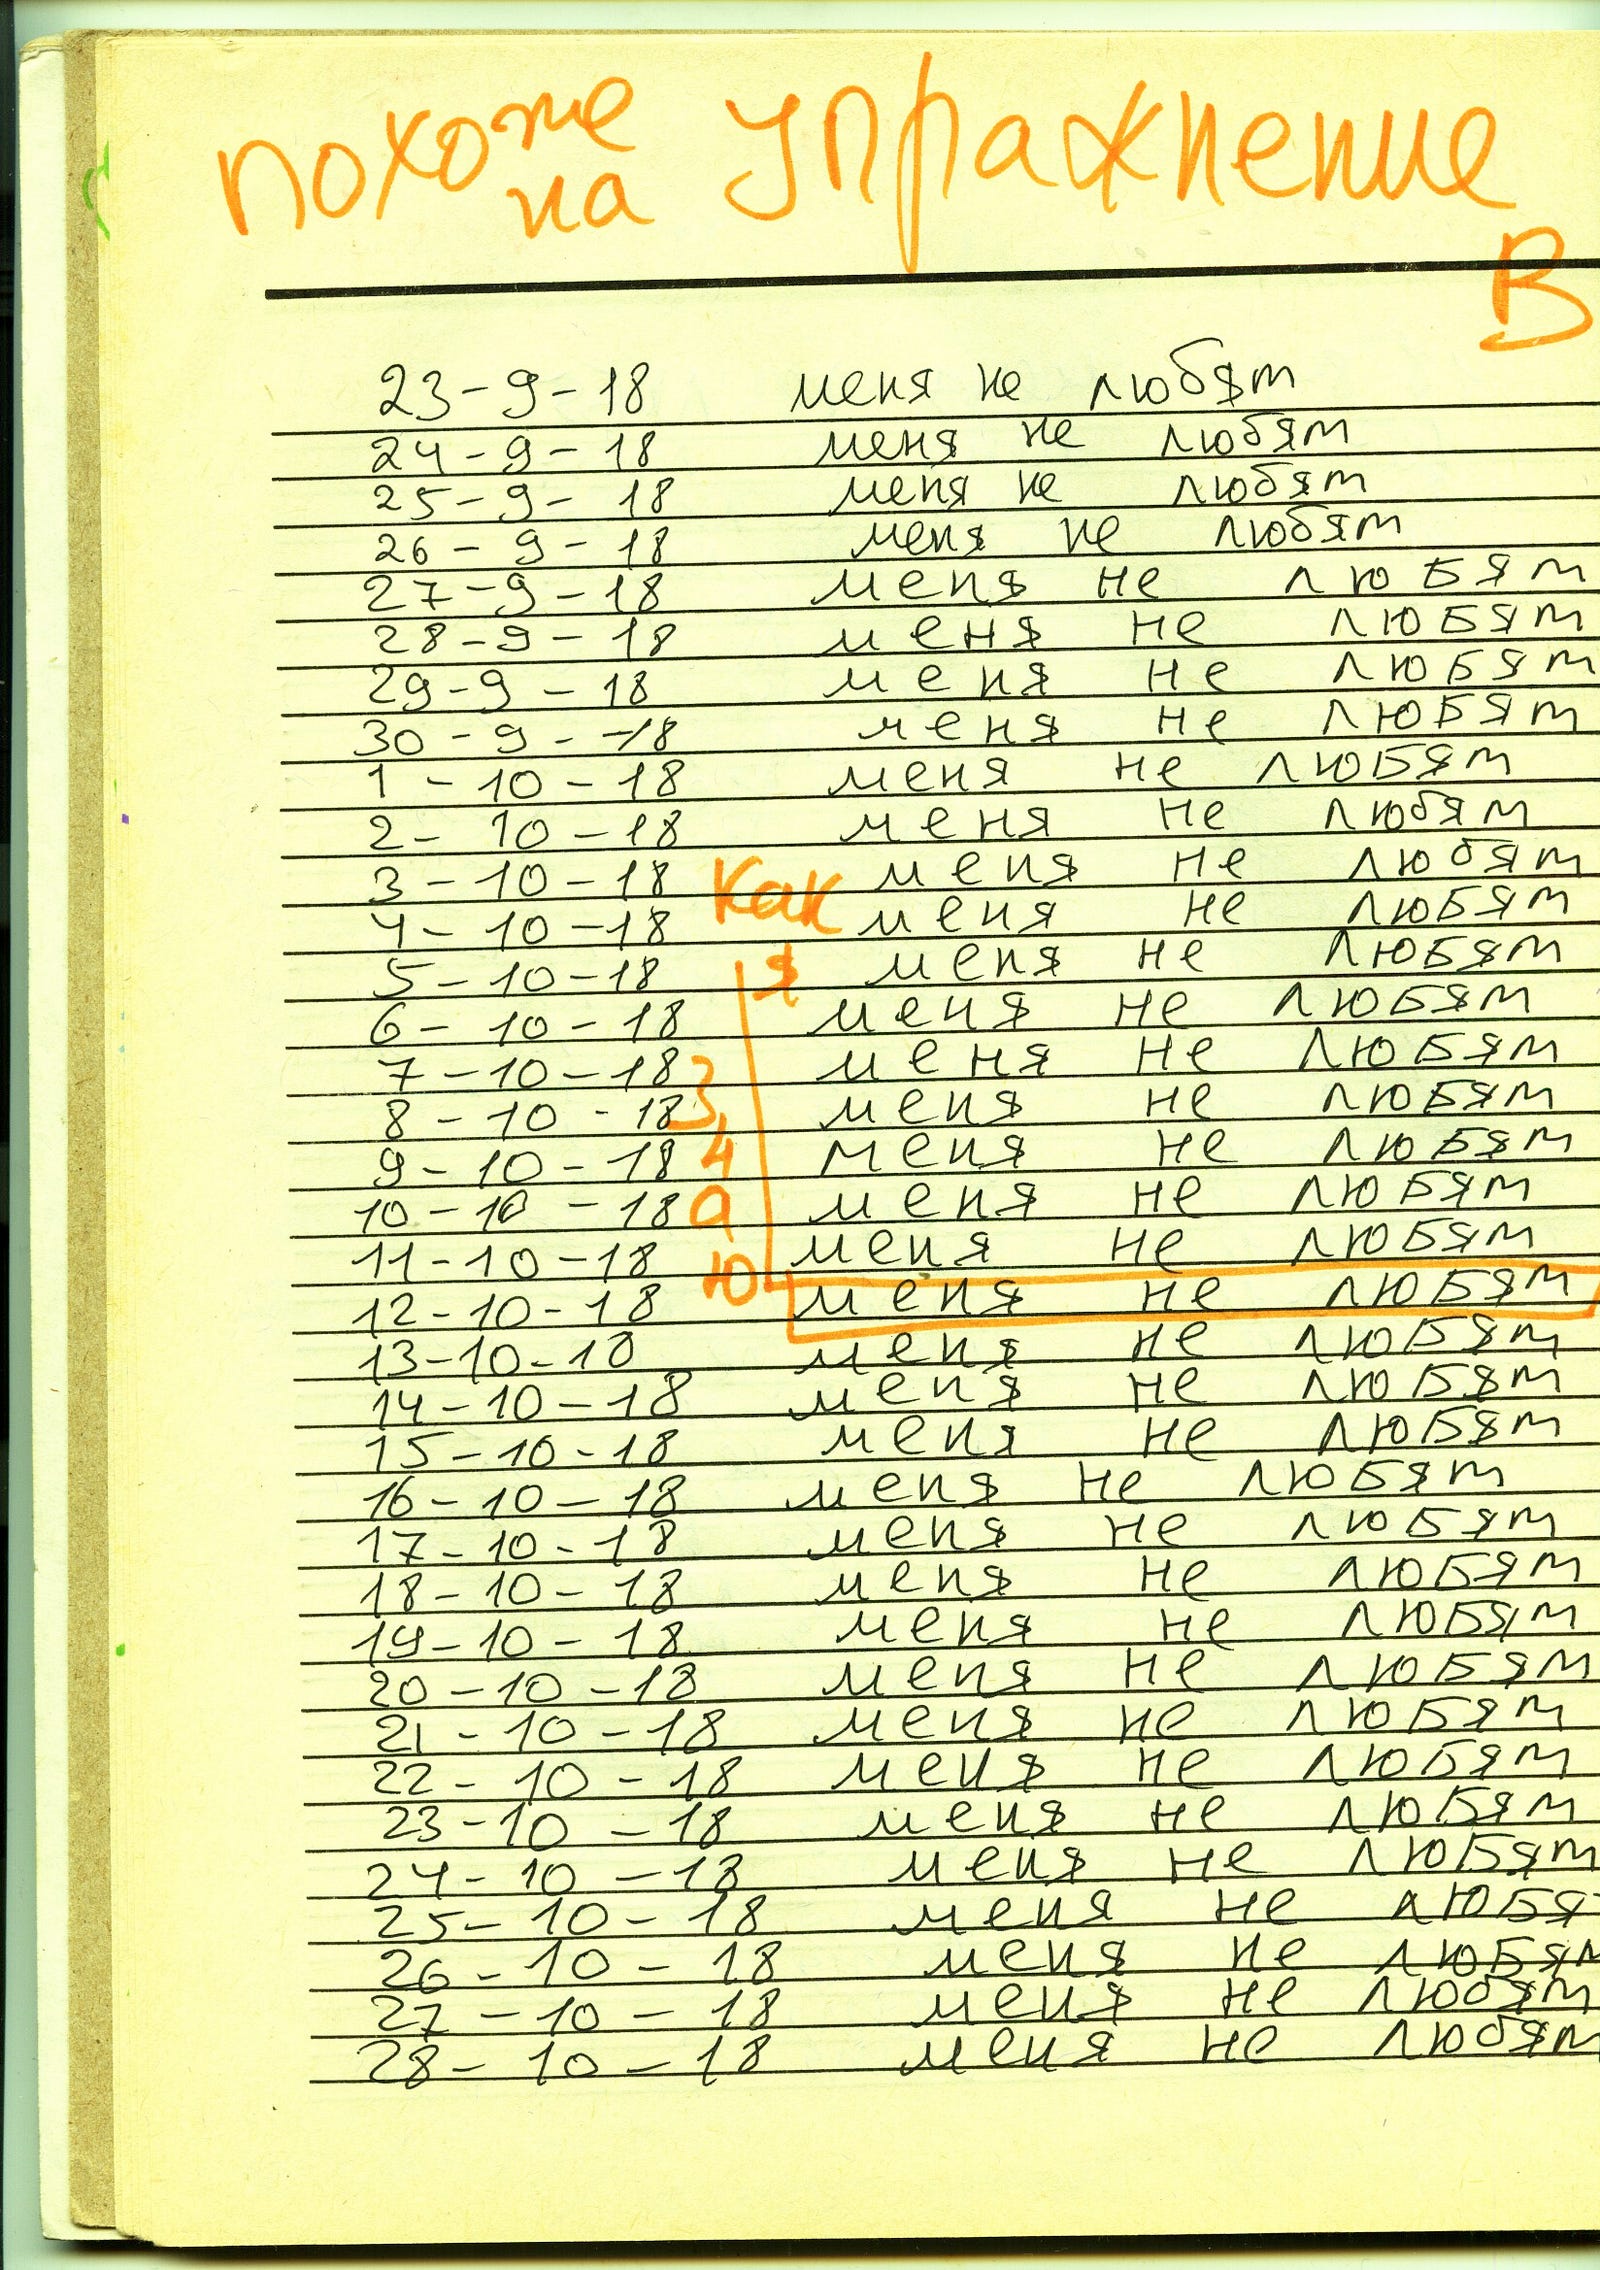 похоже на упражнение
В
23-9-18 меня не любят
24-9-18 меня не любят
25-9-18 меня не любят
26-9-18 меня не любят
27-9-18 меня не любят
28-9-18 меня не любят
29-9-18 меня не любят
30-9-18 меня не любят
1-10-18 меня не любят
2-10-18 меня не любят
3-10-18 меня не любят
4-10-18 меня не любят
5-10-18 меня не любят
6-10-18 меня не любят
7-10-18 меня не любят
8-10-18 меня не любят
9-10-18 меня не любят
10-10-18 меня не любят
11-10-18 меня не любят
12-10-18 меня не любят
13-10-18 меня не любят
14-10-18 меня не любят
15-10-18 меня не любят
16-10-18 меня не любят
17-10-18 меня не любят
18-10-18 меня не любят
19-10-18 меня не любят
20-10-18 меня не любят
21-10-18 меня не любят
22-10-18 меня не любят
23-10-18 меня не любят
24-10-18 меня не любят
25-10-18 меня не любят
26-10-18 меня не любят
27-10-18 меня не любят
28-10-18 меня не любят
Как
я
з
н
а
ю